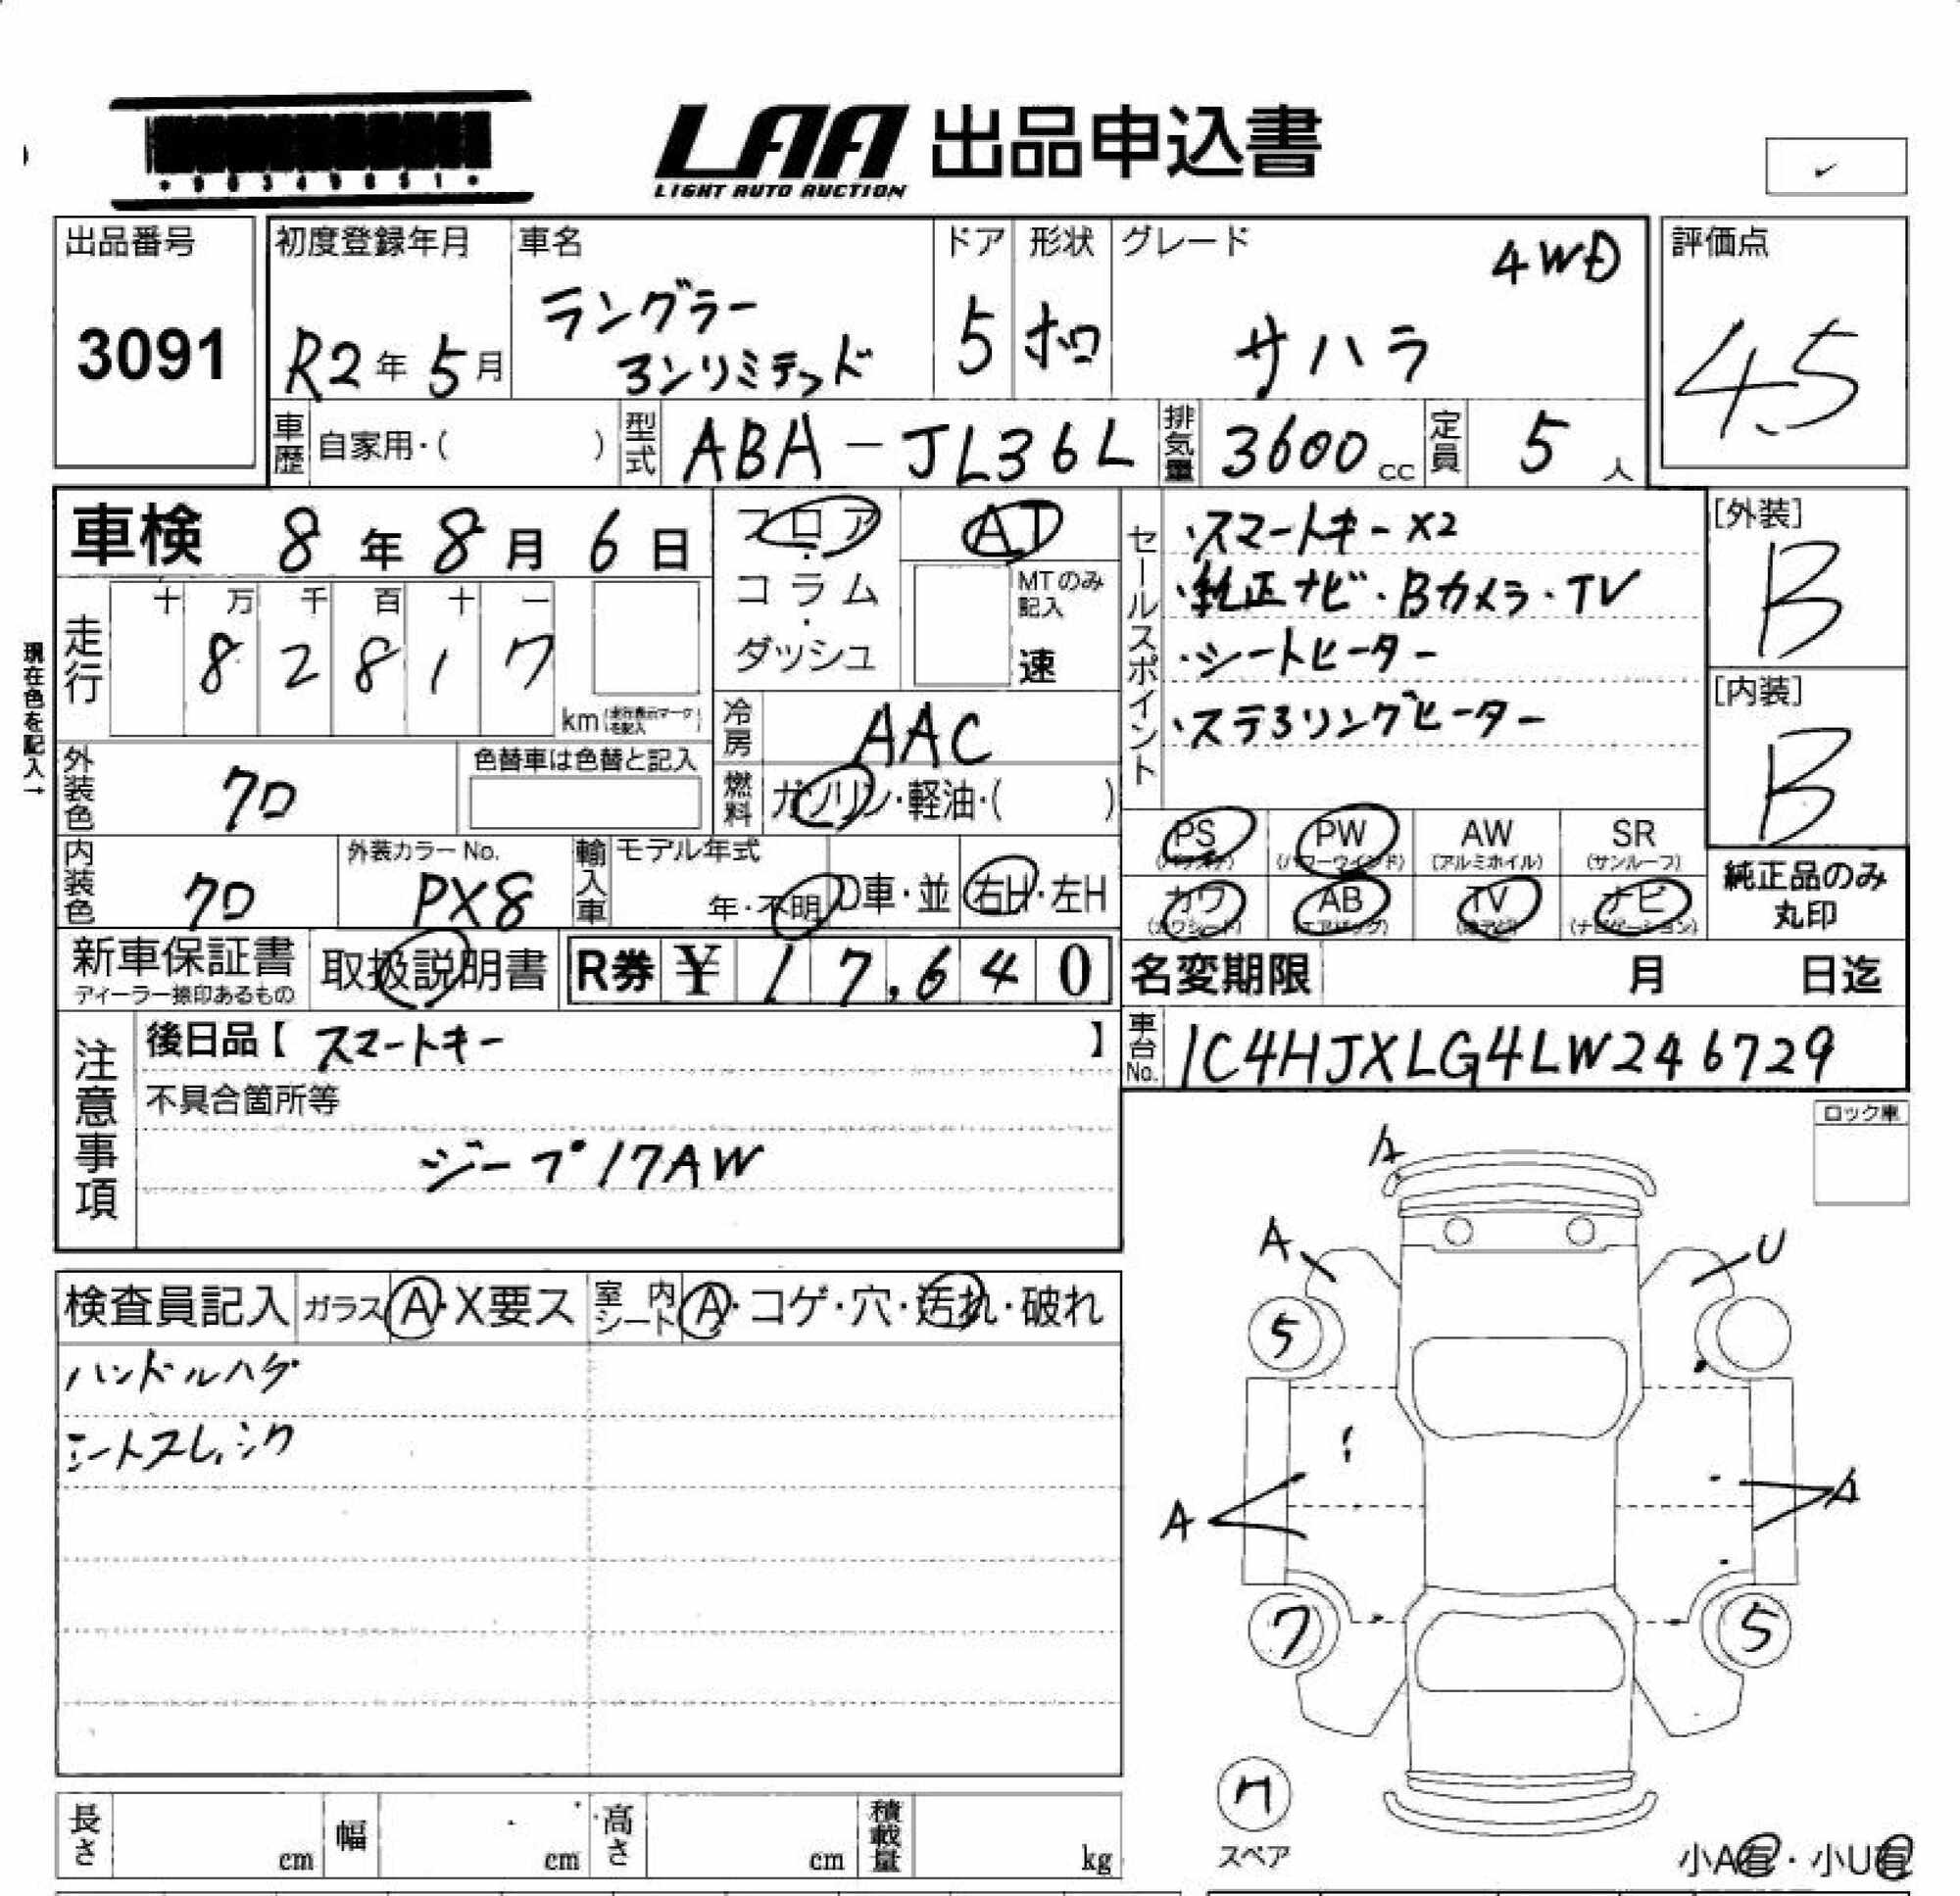 LAA 出品申込書
LIGHT AUTO AUCTION
出品番号
3091
初度登録年月
R2年 5月
車名
ラングラー
アンリミテッド
ドア
5
形状
ホロ
グレード
4WD
サハラ
評価点
4.5
車歴 自家用・( )
型式 ABA-JL36L
排気量 3600cc
定員 5人
車検 8年 8月 6日
フロア・コラム・ダッシュ
AT
MTのみ記入
速
現在色を記入→
走行
十 万 千 百 十 一
8 2 8 1 7
km(走行表示マークを記入)
冷房 AAC
燃料 ガソリン・軽油・( )
外装色 クロ
色替車は色替と記入
内装色 クロ
外装カラーNo.
PX8
輸入車
モデル年式
年・不明
D車・並
右H・左H
セールスポイント
・スマートキーX2
・純正ナビ・Bカメラ・TV
・シートヒーター
・ステアリングヒーター
[外装]
B
[内装]
B
PS (パワステ)
PW (パワーウインド)
AW (アルミホイル)
SR (サンルーフ)
カワ (カワシート)
AB (エアバッグ)
TV
ナビ (ナビゲーション)
純正品のみ
丸印
新車保証書
ディーラー捺印あるもの
取扱説明書
R券 ¥ 17,640
名変期限 月 日迄
車台No. 1C4HJXLG4LW246729
注意事項
後日品【スマートキー】
不具合箇所等
ジープ17AW
ロック車
検査員記入
ガラス A・X要ス
室内シート A・コゲ・穴・汚れ・破れ
ハンドルハゲ
シートスレ、シワ
A
A
U
5
A
A
7
5
7
スペア
小A有・小U有
長さ cm
幅 cm
高さ cm
積載量 kg